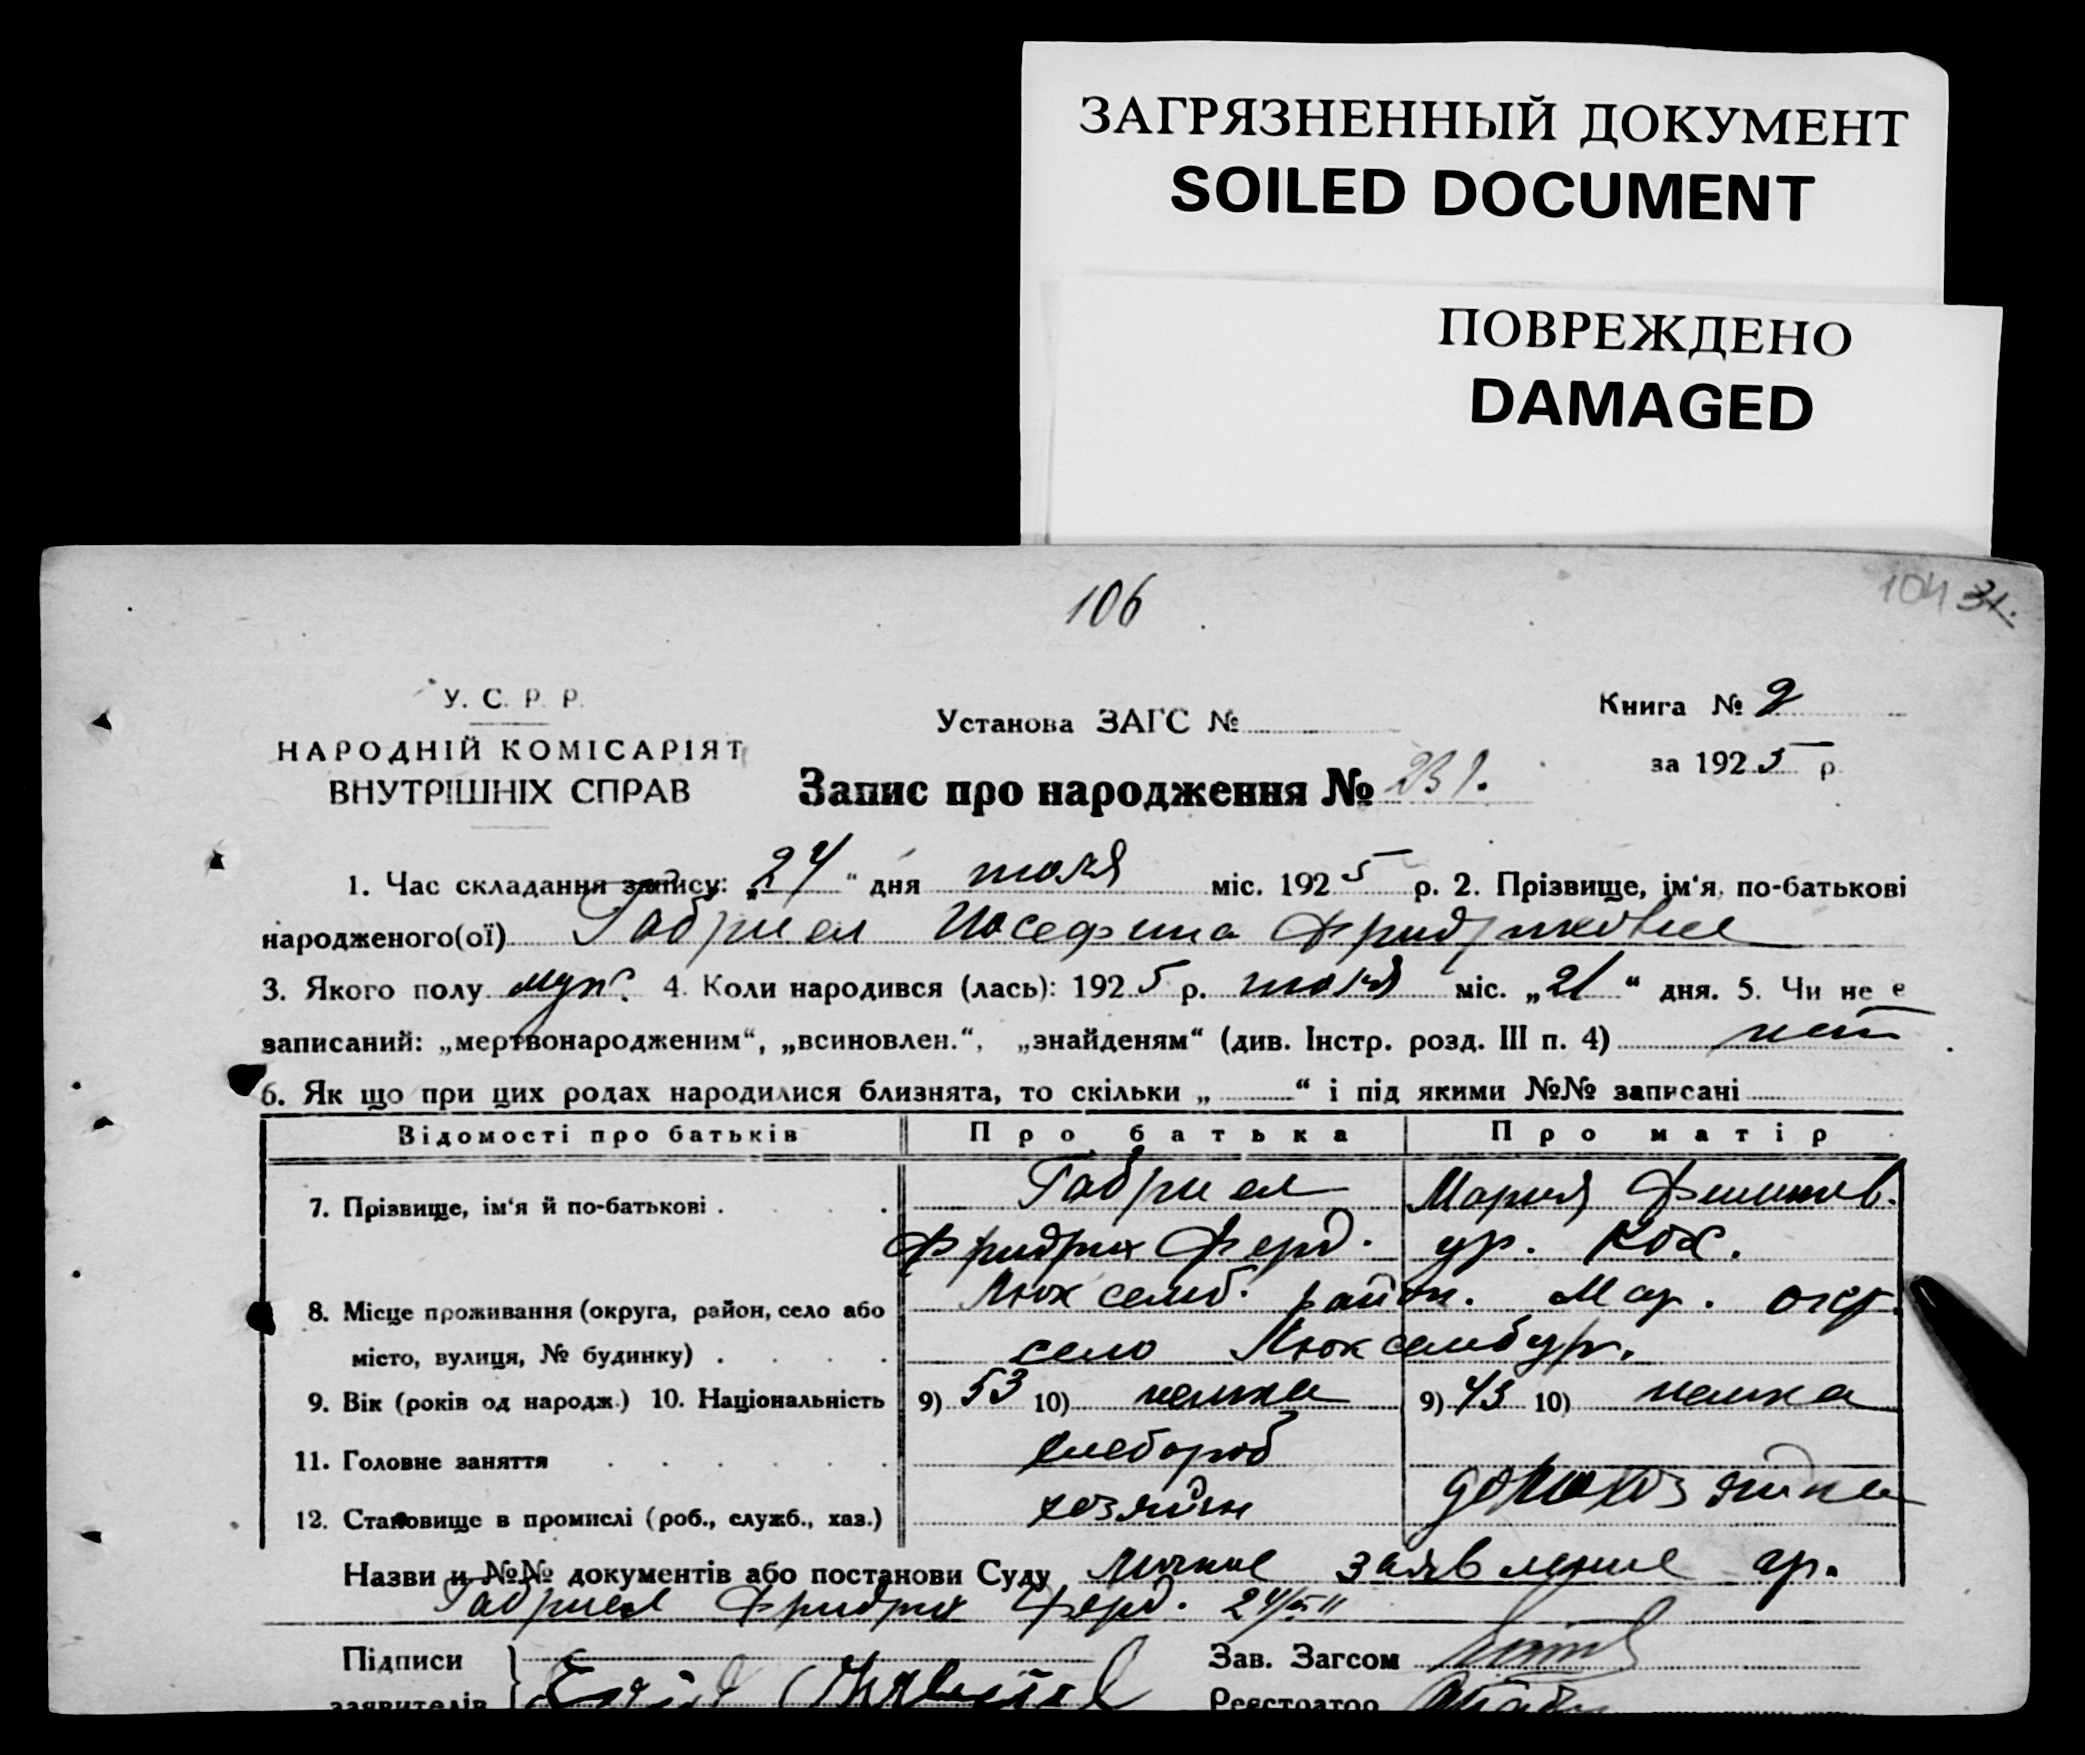 ЗАГРЯЗНЕННЫЙ ДОКУМЕНТ
SOILED DOCUMENT
ПОВРЕЖДЕНО
DAMAGED
106
104 31.
У. С. Р. Р.
НАРОДНІЙ КОМІСАРІЯТ
ВНУТРІШНІХ СПРАВ
Установа ЗАГС №
Книга № 2
за 1925 р.
Запис про народження № 231.
1. Час складання запису: „24“ дня июля міс. 1925 р. 2. Прізвище, ім‘я, по-батькові
народженого(ої) Габриел Иосефина Фридриховне
3. Якого полу муж. 4. Коли народився (лась): 1925 р. июля міс. „21“ дня. 5. Чи не є
записаний: „мертвонародженим“, „всиновлен.“, „знайденям“ (див. Інстр. розд. III п. 4) нет
6. Як що при цих родах народилися близнята, то скільки „ “ і під якими №№ записані
Відомості про батьків Про батька Про матір
7. Прізвище, ім‘я й по-батькові . Габриел Мария Филипов.
Фридрих Ферд. ур. Кох.
8. Місце проживання (округа, район, село або Люксемб. район. Мар. окр.
місто, вулиця, № будинку) . село Люксембург.
9. Вік (років од народж.) 10. Національність 9) 53 10) немка 9) 43 10) немка
11. Головне заняття хлебороб
12. Становище в промислі (роб., служб., хаз.) хозяйн домохозяйка
Назви и №№ документів або постанови Суду личное заявление гр.
Габриел Фридрих Ферд. 24/VII
Підписи Зав. Загсом
заявителів Реєстратор